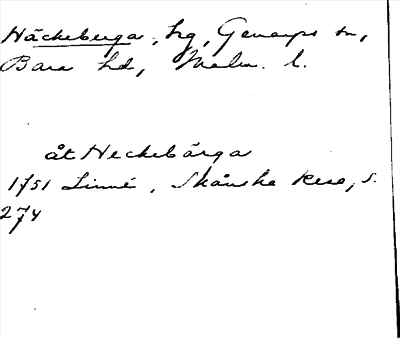 Häckeberga, hg, Genarps sn,
Bara hd, Malm. l.
åt Heckebärga
1751 Linné, Skånska Resa, s.
274